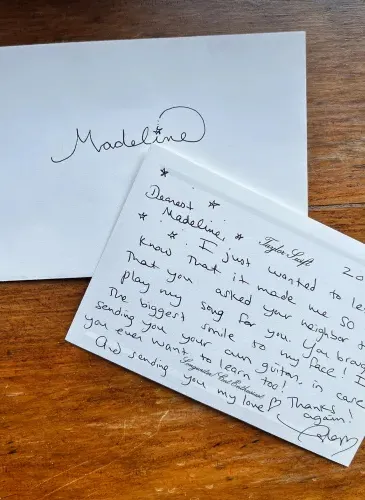 Madeline
Dearest
Madeline,
Taylor Swift
20
I just wanted to le
know that it made me so
that you asked your neighbor t
play my song for you. You brou
the biggest smile to my face! I
sending you your own guitar, in case
you ever want to learn too! Thanks!
And sending you my love again!